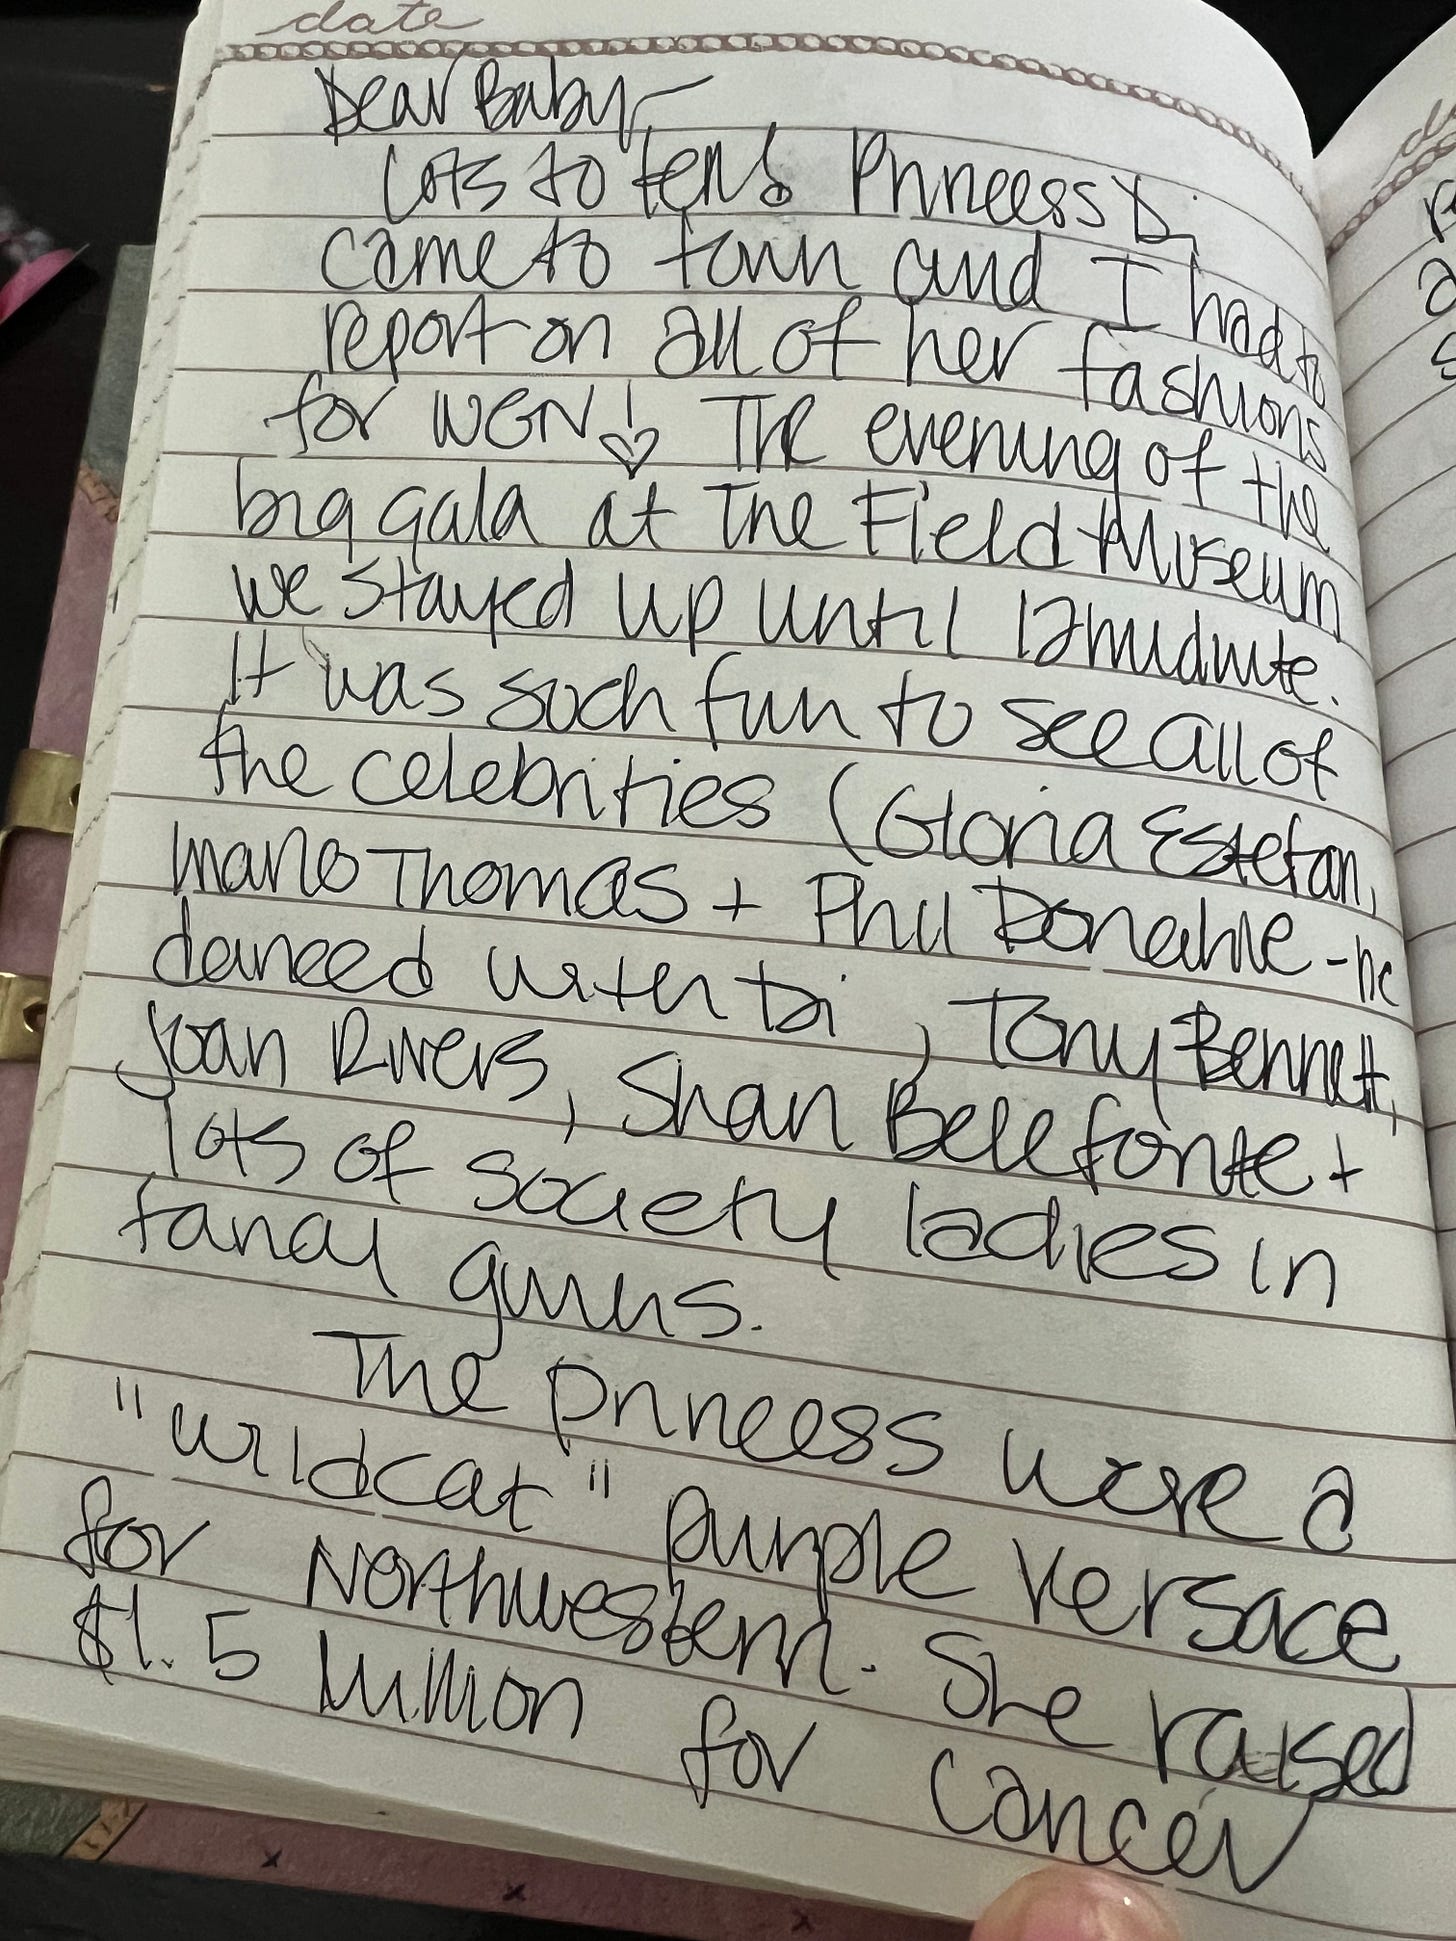 date
Dear Baby—
Lots to tell! Princess Di
came to town and I had to
report on all of her fashions
for WGN! The evening of the
big gala at The Field Museum
we stayed up until 12 midnite.
It was such fun to see all of
the celebrities (Gloria Estefan,
Marlo Thomas + Phil Donahue - he
danced with Di, Tony Bennett,
Joan Rivers, Shari Belefonte +
lots of society ladies in
fancy gowns.
The princess wore a
"wildcat" purple Versace
for Northwestern. She raised
$1.5 million for cancer